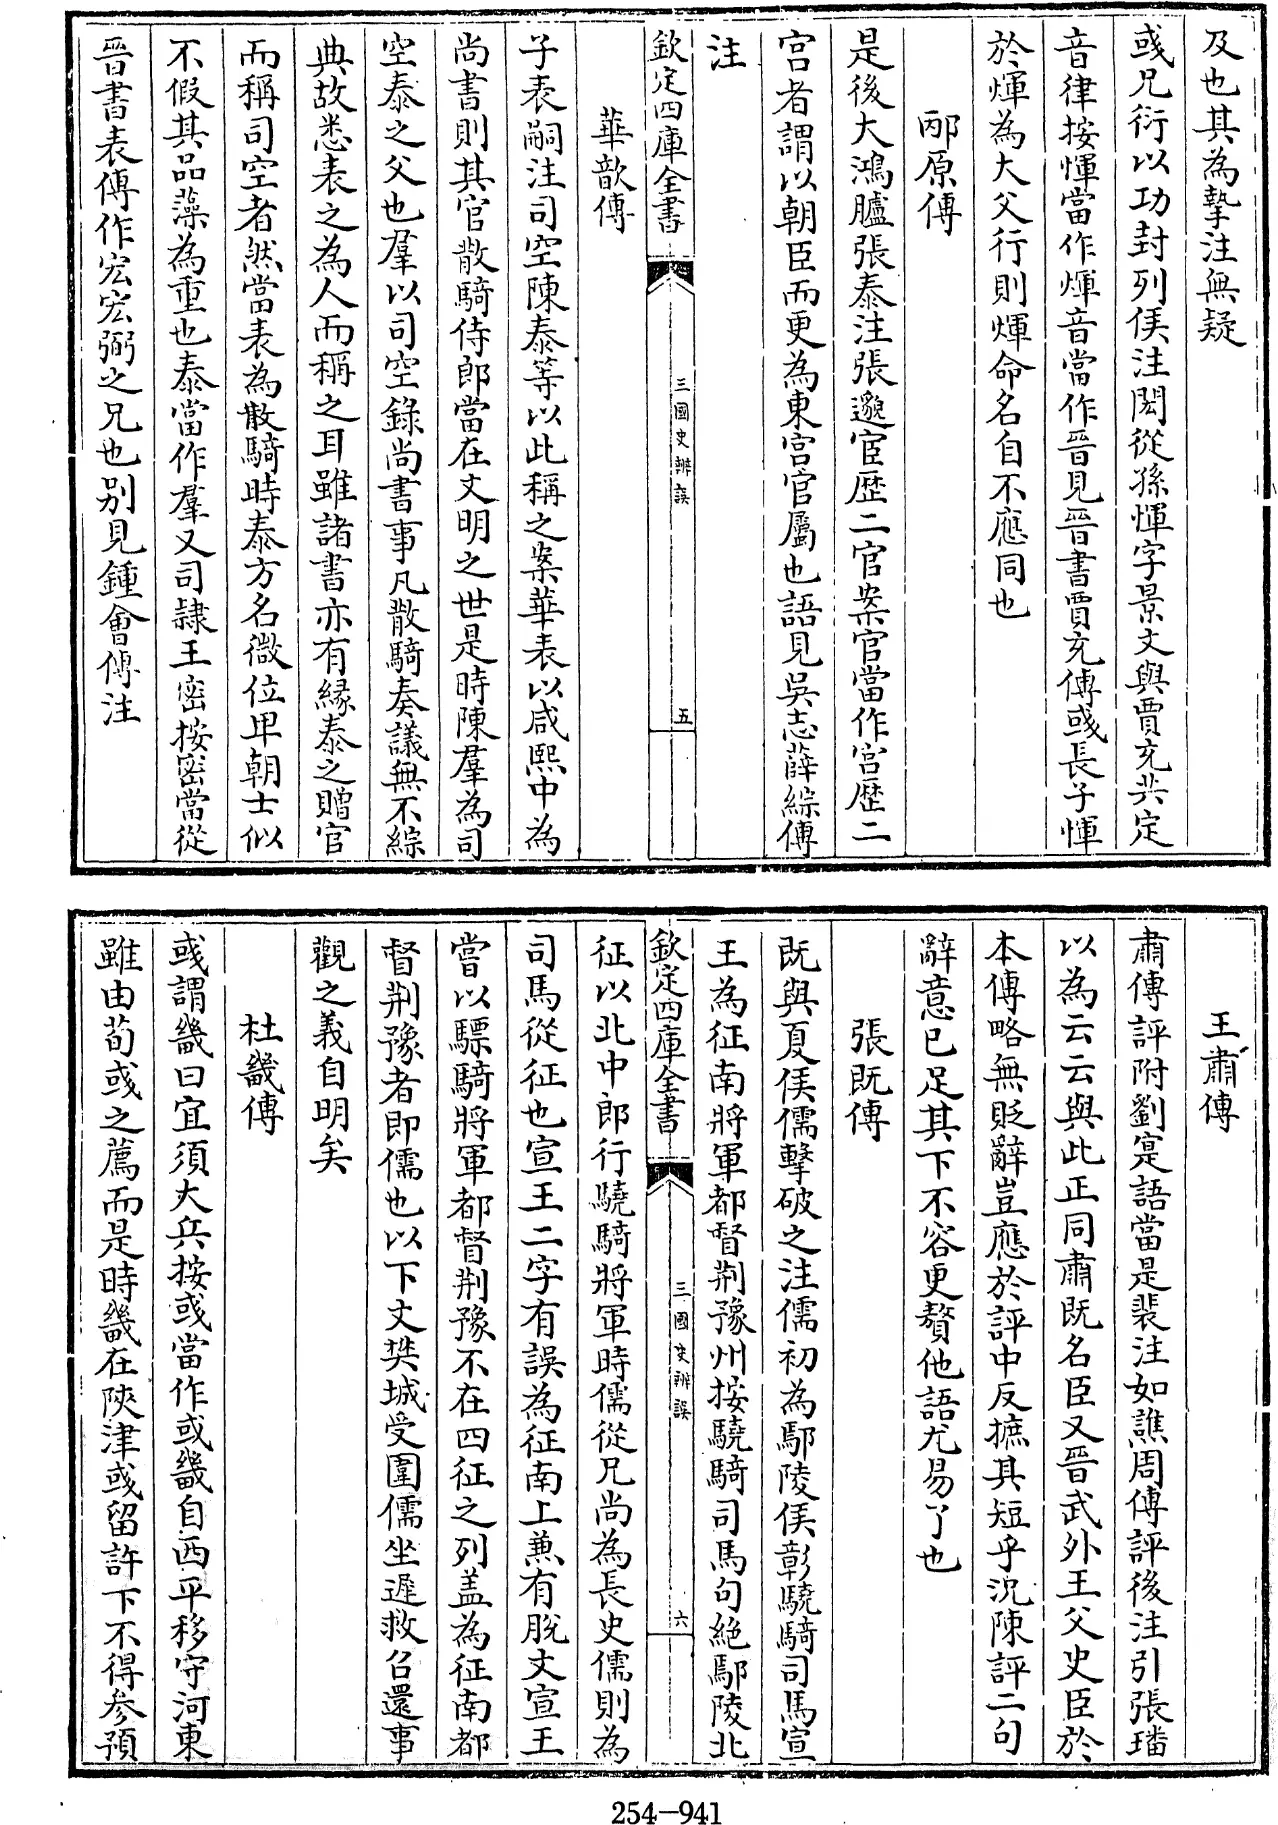 及也其為摯注無疑
彧兄衍以功封列侯注閎從孫惲字景文與賈充共定
音律按惲當作煇音當作晉見晉書賈充傳彧長子惲
於煇為大父行則煇命名自不應同也
邴原傳
是後大鴻臚張泰注張邈宦歴二官案官當作宫歴二
宫者謂以朝臣而更為東宫官屬也語見吳志薛綜傳
注
欽定四庫全書
三國史辨誤
五
華歆傳
子表嗣注司空陳泰等以此稱之案華表以咸熙中為
尚書則其官散騎侍郎當在文明之世是時陳羣為司
空泰之父也羣以司空錄尚書事凡散騎奏議無不綜
典故悉表之為人而稱之耳雖諸書亦有緣泰之贈官
而稱司空者然當表為散騎時泰方名微位卑朝士似
不假其品藻為重也泰當作羣又司隸王密按密當從
晉書表傳作宏宏弼之兄也别見鍾會傳注
王肅傳
肅傳評附劉寔語當是裴注如譙周傳評後注引張璠
以為云云與此正同肅既名臣又晉武外王父史臣於
本傳略無貶辭豈應於評中反摭其短乎況陳評二句
辭意已足其下不容更贅他語尤易了也
張既傳
既與夏侯儒擊破之注儒初為鄢陵侯彰驍騎司馬宣
王為征南將軍都督荆豫州按驍騎司馬句絶鄢陵北
欽定四庫全書
三國史辨誤
六
征以北中郎行驍騎將軍時儒從兄尚為長史儒則為
司馬從征也宣王二字有誤為征南上兼有脫文宣王
嘗以驃騎將軍都督荆豫不在四征之列盖為征南都
督荆豫者即儒也以下文樊城受圍儒坐遲救召還事
觀之義自明矣
杜畿傳
彧謂畿曰宜須大兵按彧當作或畿自西平移守河東
雖由荀彧之薦而是時畿在陝津彧留許下不得參預
254-941